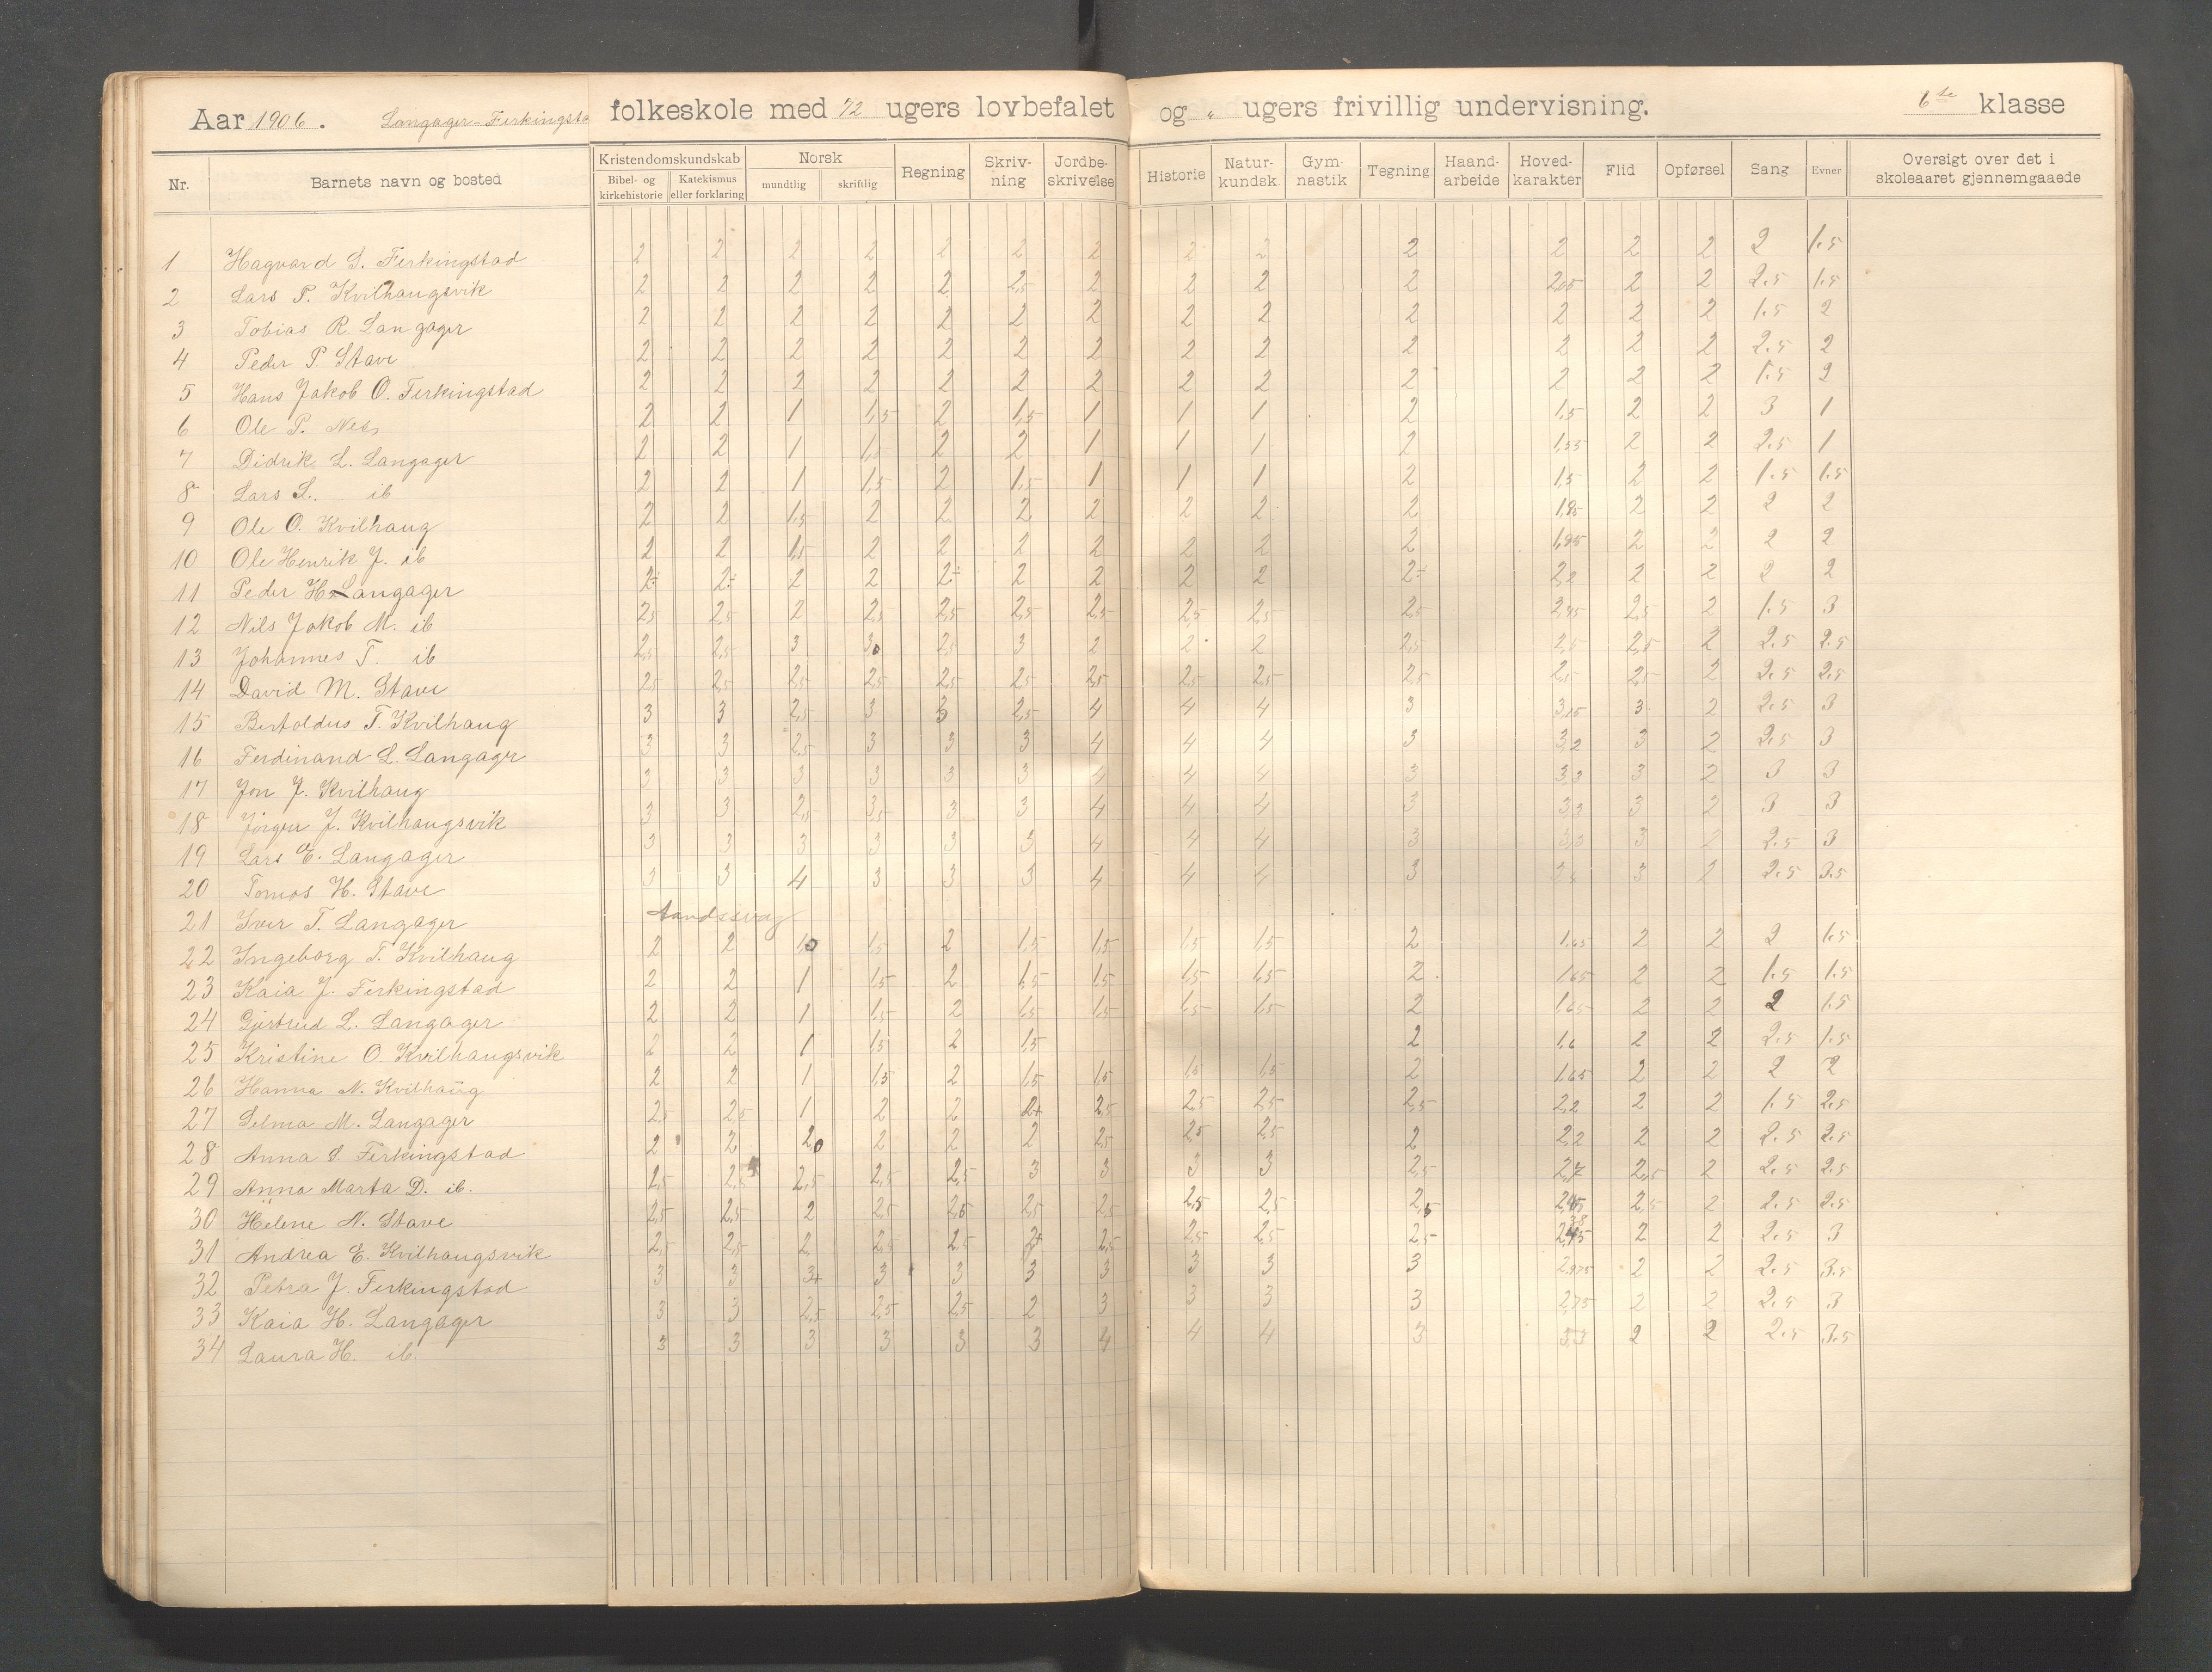 Aar 1906. Langager-Ferkingsta folkeskole med 12 ugers lovbefalet og " ugers frivillig undervisning. 6te klasse
Nr. Barnets navn og bosted Kristendomskundskab Norsk Regning Skriv-ning Jordbe-skrivelse Historie Natur-kundsk. Gym-nastik Tegning Haand-arbeide Hoved-karakter Flid Opførsel Sang Evner Oversigt over det i skoleaaret gjennemgaaede
Bibel- og kirkehistorie Katekismus eller forklaring mundtlig skriftlig
1 Hagvard S. Ferkingstad 2 2 2 2 2 2 2 2 2 2 2 2 2 2 1.5
2 Lars P. Kvilhaugsvik 2 2 2 2 2 2,5 2 2 2 2 2,05 2 2 2.5 1.5
3 Tobias R. Langager 2 2 2 2 2 2 2 2 2 2 2 2 2 1.5 2
4 Peder P Stave 2 2 2 2 2 2 2 2 2 2 2 2 2 2.5 2
5 Hans Jakob O. Ferkingstad 2 2 2 2 2 2 2 2 2 2 2 2 2 1.5 2
6 Ole P. Nes 2 2 1 1,5 2 1,5 1 1 1 2 1,5 2 2 3 1
7 Didrik L. Langager 2 2 1 1,5 2 2 1 1 1 2 1,55 2 2 2.5 1
8 Lars L. ib 2 2 1 1,5 2 1,5 1 1 1 2 1,5 2 2 1.5 1.5
9 Ole O. Kvilhaug 2 2 1,5 2 2 2 2 2 2 2 1,95 2 2 2 2
10 Ole Henrik J. ib 2 2 1,5 2 2 2 2 2 2 2 1,95 2 2 2 2
11 Peder H. Langager 2÷ 2÷ 2 2 2÷ 2 2 2 2 2÷ 2,2 2 2 2 2
12 Nils Jakob M. ib 2,5 2,5 2 2,5 2,5 2,5 2,5 2,5 2,5 2,5 2,45 2,5 2 1.5 3
13 Johannes T. ib 2,5 2,5 3 3,0 2,5 3 2 2 2 2,5 2,5 2,5 2 2.5 2.5
14 David M. Stave 2,5 2,5 2,5 2,5 2,5 2,5 2,5 2,5 2,5 2,5 2,5 2,5 2 2.5 2.5
15 Bertoldus T. Kvilhaug 3 3 2,5 3 3 2,5 4 4 4 3 3,15 3 2 2.5 3
16 Ferdinand L. Langager 3 3 2,5 3 3 3 4 4 4 3 3,2 3 2 2.5 3
17 Jon J. Kvilhaug 3 3 3 3 3 3 4 4 4 3 3,3 3 2 3 3
18 Jörgen J. Kvilhaugsvik 3 3 2,5 3,5 3 3 4 4 4 3 3,3 3 2 3 3
19 Lars E. Langager 3 3 3 3 3 3 4 4 4 3 3,3 3 2 2.5 3
20 Tomas H. Stave 3 3 4 3 3 3 4 4 4 3 3 2 2.5 3.5
21 Iver T. Langager Aandssvag
22 Ingeborg T. Kvilhaug 2 2 1,0 1,5 2 1,5 1,5 1,5 1,5 2 1,65 2 2 2 1.5
23 Kaia J. Ferkingstad 2 2 1 1,5 2 1,5 1,5 1,5 1,5 2 1,65 2 2 1.5 1.5
24 Gjertrud L. Langager 2 2 1 1,5 2 1,5 1,5 1,5 1,5 2 1,65 2 2 2 1.5
25 Kristine O. Kvilhaugsvik 2 2 1 1,5 2 1,5 2 1,6 2 2 2.5 1.5
26 Hanna N. Kvilhaug 2 2 1 1,5 2 1,5 1,5 1,5 1,5 2 1,65 2 2 2 2
27 Selma M. Langager 2,5 2,5 1 2 2 2+ 2,5 2,5 2,5 2,5 2,2 2 2 1.5 2.5
28 Anna S. Ferkingstad 2 2 2,0 2 2 2 2,5 2,5 2,5 2 2,2 2 2 2.5 2.5
29 Anna Marta D. ib. 2,5 2,5 2,5 2,5 2,5 3 3 3 3 2,5 2,7 2,5 2 2.5 2.5
30 Helene N. Stave 2,5 2,5 2 2,5 2,5 2,5 2,5 2,5 2,5 2,5 2,45 2,5 2 2.5 2.5
31 Andrea E. Kvilhaugsvik 2,5 2,5 2 2,5 2,5 2+ 2,5 2,5 2,5 2,5 2,45 2 2 2.5 3
32 Petra J. Ferkingstad 3 3 3+ 3 3 3 3 3 3 3 2,975 2 2 2.5 3.5
33 Kaia H. Langager 3 3 2,5 2,5 2,5 2 3 3 3 3 2,75 2 2 2.5 3
34 Laura H. ib. 3 3 3 3 3 3 4 4 4 3 3,3 2 2 2.5 3.5